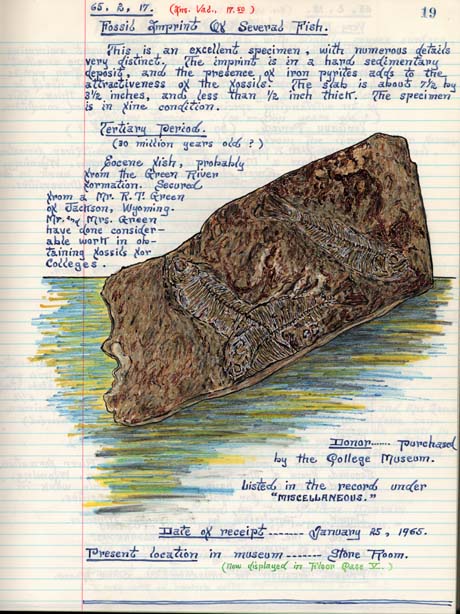 65. 2. 17. (Ins. Val., 17.50) 19
Fossil Imprint Of Several Fish.
This is an excellent specimen, with numerous details
very distinct. The imprint is in a hard sedimentary
deposit, and the presence of iron pyrites adds to the
attractiveness of the fossils. The slab is about 7½ by
3½ inches, and less than ½ inch thick. The specimen
is in fine condition.
Tertiary Period.
(30 million years old ?)
Eocene fish, probably
from the Green River
formation. Secured
from a Mr. R. T. Green
of Jackson, Wyoming.
Mr. and Mrs. Green
have done consider-
able work in ob-
taining fossils for
Colleges.
Donor...... purchased
by the College Museum.
Listed in the record under
"MISCELLANEOUS."
Date of receipt ------- January 25, 1965.
Present location in museum ------ Store Room.
(now displayed in Floor Case V.)